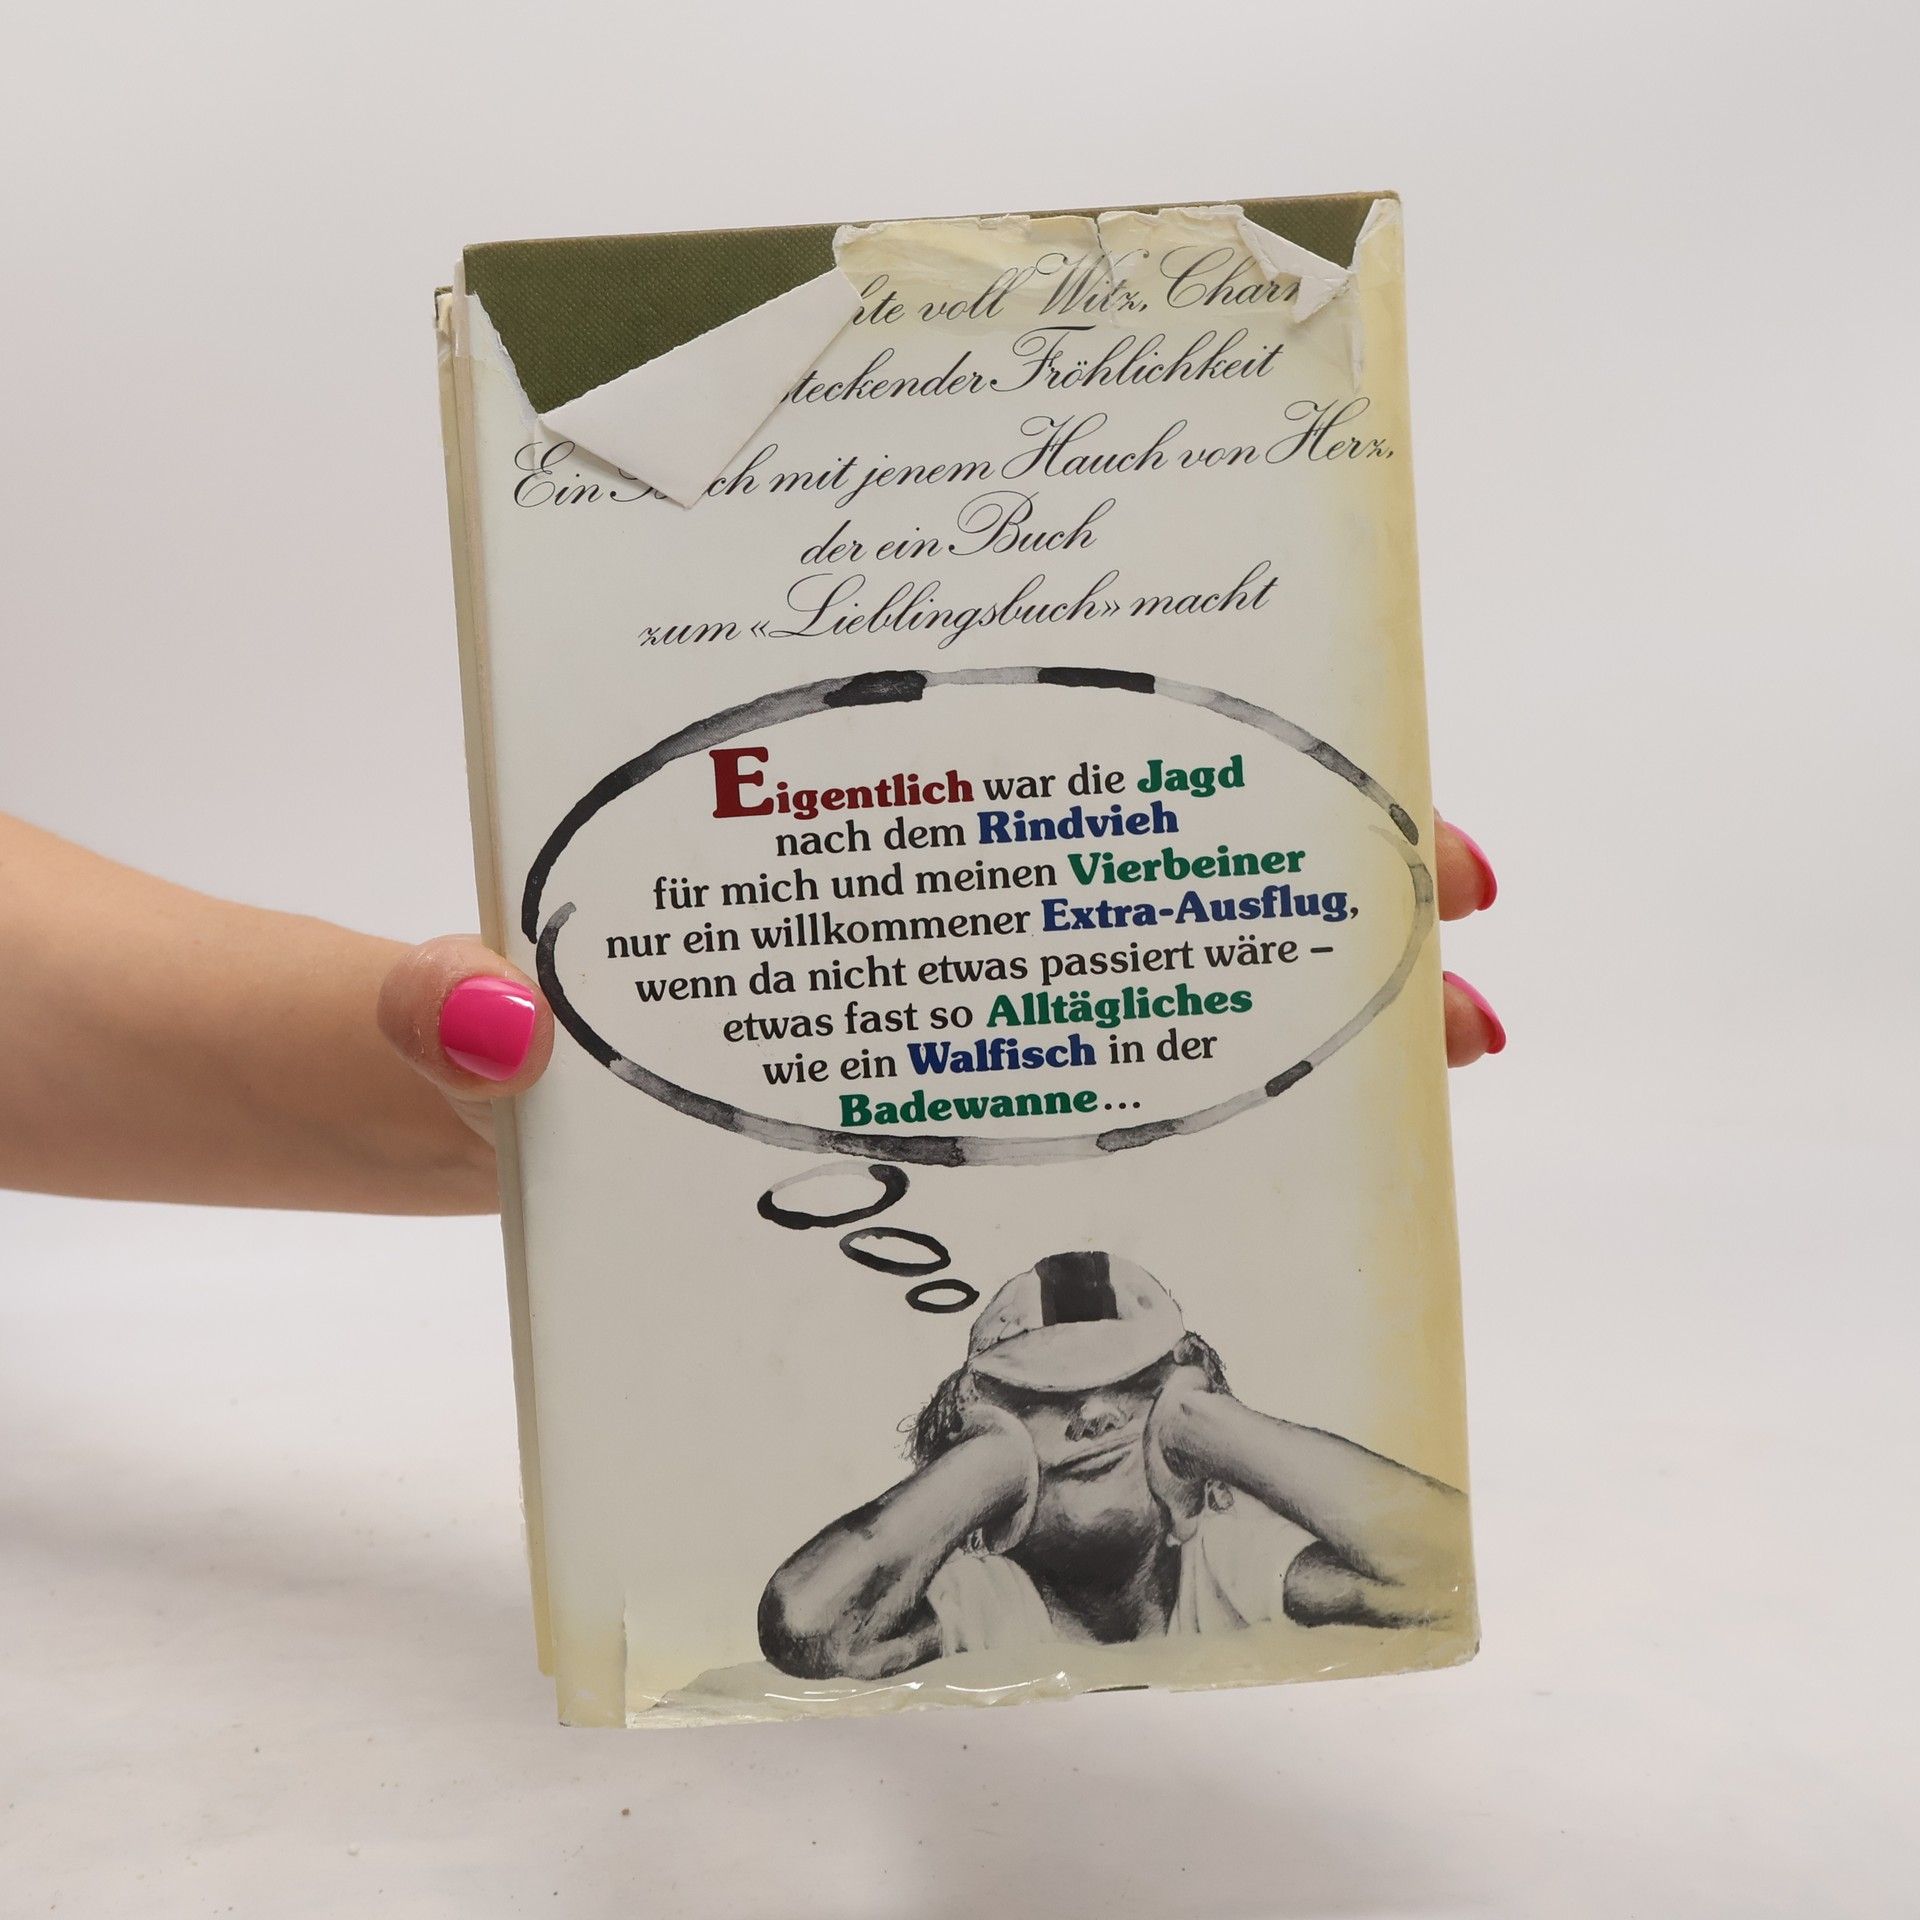 voll Witz, Charm
Fröhlichkeit
Ein Buch mit jenem Hauch von Herz,
der ein Buch
zum «Lieblingsbuch» macht
Eigentlich war die Jagd
nach dem Rindvieh
für mich und meinen Vierbeiner
nur ein willkommener Extra-Ausflug,
wenn da nicht etwas passiert wäre –
etwas fast so Alltägliches
wie ein Walfisch in der
Badewanne...